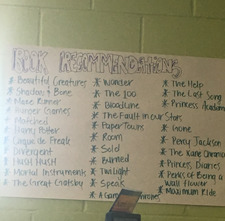 BOOK RECOMMENDATIONS
* Beautiful Creatures
* Shadow & Bone
* Maze Runner
* Hunger Games
* Matched
* Harry Potter
* Cirque du Freak
* Divergent
* Hush Hush
* Mortal Instruments
* The Great Gatsby
* Wonder
* The 100
* Bloodline
* The Fault in our Stars
* Paper Towns
* Room
* Sold
* Burned
* Twilight
* Speak
* A Game of Thrones
* The Help
* The Last Song
* Princess Academy
* Percy Jackson
* The Kane Chronicles
* Princess Diaries
* Perks of Being a
Wall flower
* Maximum Ride